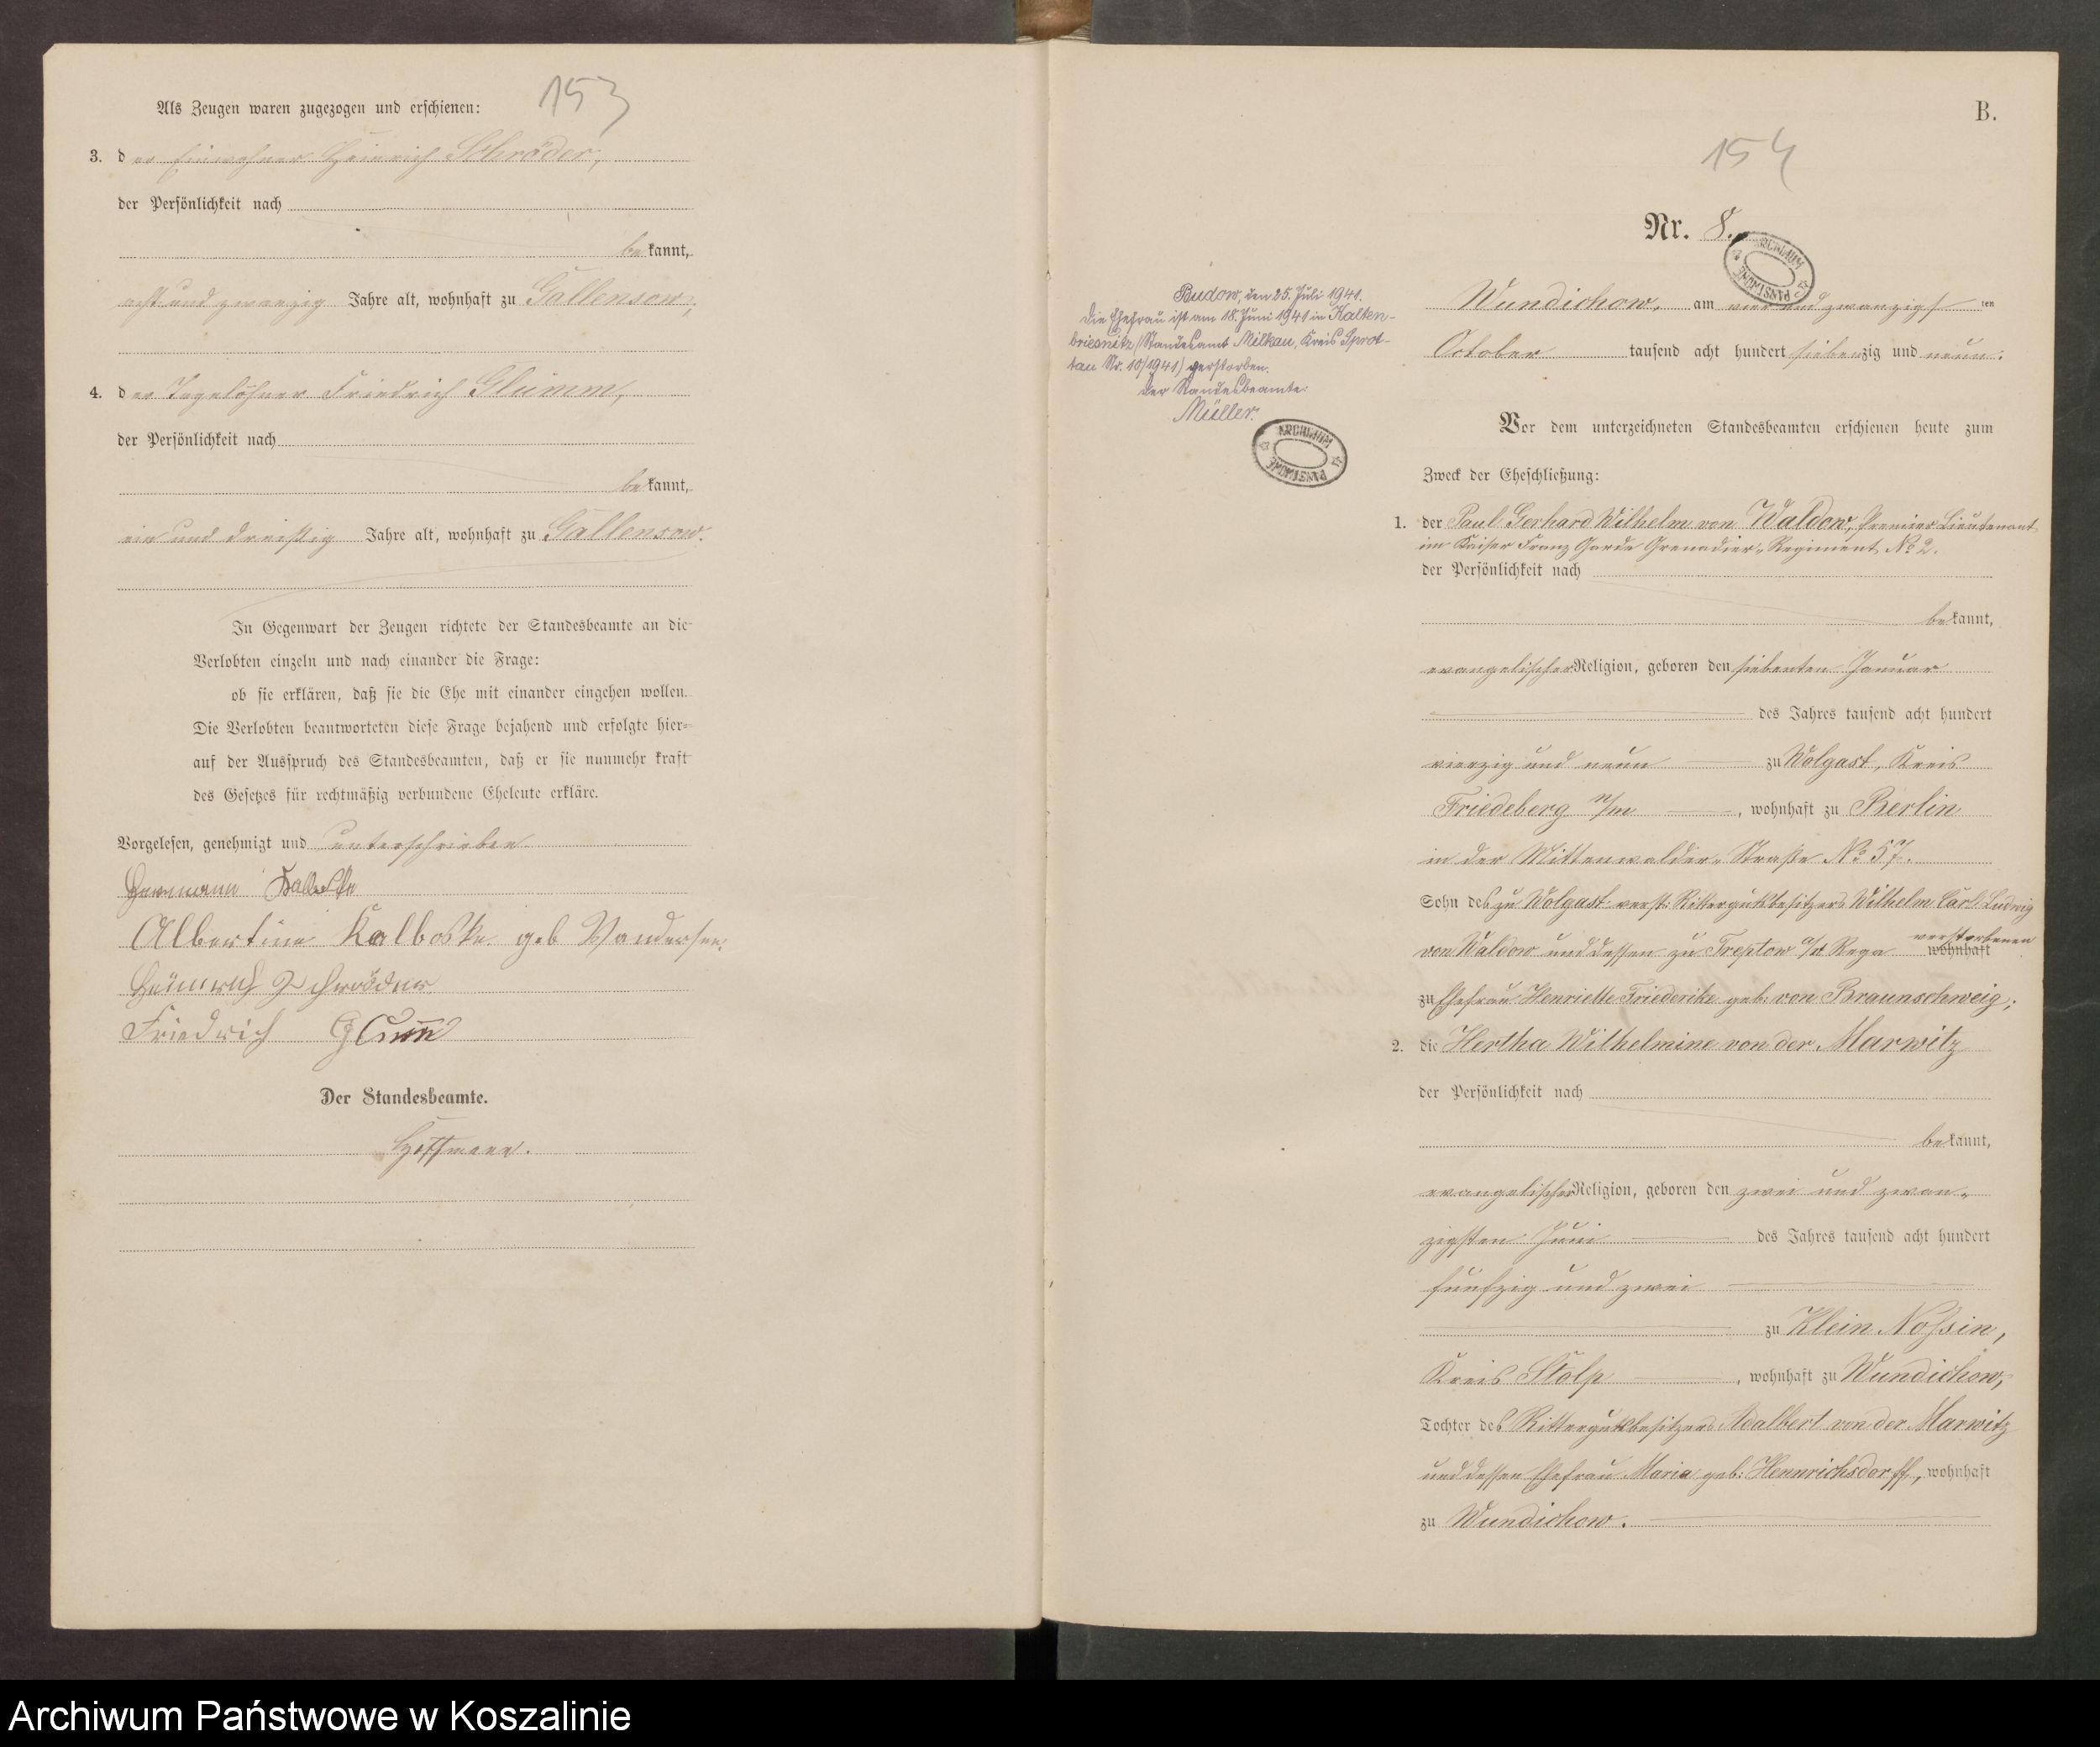 153
Als Zeugen waren zugezogen und erschienen:
3. der Einwohner Heinrich Schröder,
der Persönlichkeit nach
bekannt,
acht und zwanzig Jahre alt, wohnhaft zu Gallensow;
4. der Tagelöhner Friedrich Glumm,
der Persönlichkeit nach
bekannt,
ein und dreißig Jahre alt, wohnhaft zu Gallensow.
In Gegenwart der Zeugen richtete der Standesbeamte an die
Verlobten einzeln und nach einander die Frage:
ob sie erklären, daß sie die Ehe mit einander eingehen wollen.
Die Verlobten beantworteten diese Frage bejahend und erfolgte hier-
auf der Ausspruch des Standesbeamten, daß er sie nunmehr kraft
des Gesetzes für rechtmäßig verbundene Eheleute erkläre.
Vorgelesen, genehmigt und unterschrieben
Hermann Kalboske
Albertine Kalboske geb Vandersee.
Heinrich Schröder
Friedrich Glumm
Der Standesbeamte.
Hoffmann.
B.
154
Nr. 8.
ARCHIWUM PAŃSTWOWE
Wundichow, am vier und zwanzigsten
October tausend acht hundert siebenzig und neun.
Budow, den 25. Juli 1941.
Die Ehefrau ist am 18. Juni 1941 in Kalten-
briesnitz (Standesamt Milkau, Kreis Sprot-
tau Nr. 10/1941) verstorben.
Der Standesbeamte:
Müller.
ARCHIWUM PAŃSTWOWE
Vor dem unterzeichneten Standesbeamten erschienen heute zum
Zweck der Eheschließung:
1. der Paul Gerhard Wilhelm von Waldow, Premier-Lieutenant
im Kaiser Franz Garde Grenadier-Regiment No 2.
der Persönlichkeit nach
bekannt,
evangelischer Religion, geboren den siebenten Januar
des Jahres tausend acht hundert
vierzig und neun zu Wolgast, Kreis
Friedeberg N/m, wohnhaft zu Berlin
in der Mittenwalder-Straße No 57.
Sohn des zu Wolgast verst. Rittergutsbesitzers Wilhelm Carl Ludwig
von Waldow und dessen zu Treptow a/d Rega wohnhaft verstorbenen
zu Ehefrau Henriette Friederike geb: von Braunschweig;
2. die Hertha Wilhelmine von der Marwitz
der Persönlichkeit nach
bekannt,
evangelischer Religion, geboren den zwei und zwan-
zigsten Juni des Jahres tausend acht hundert
funfzig und zwei
zu Klein Nossin,
Kreis Stolp, wohnhaft zu Wundichow,
Tochter des Rittergutsbesitzers Adalbert von der Marwitz
und dessen Ehefrau Maria geb: Hennrichsdorff, wohnhaft
zu Wundichow.
Archiwum Państwowe w Koszalinie